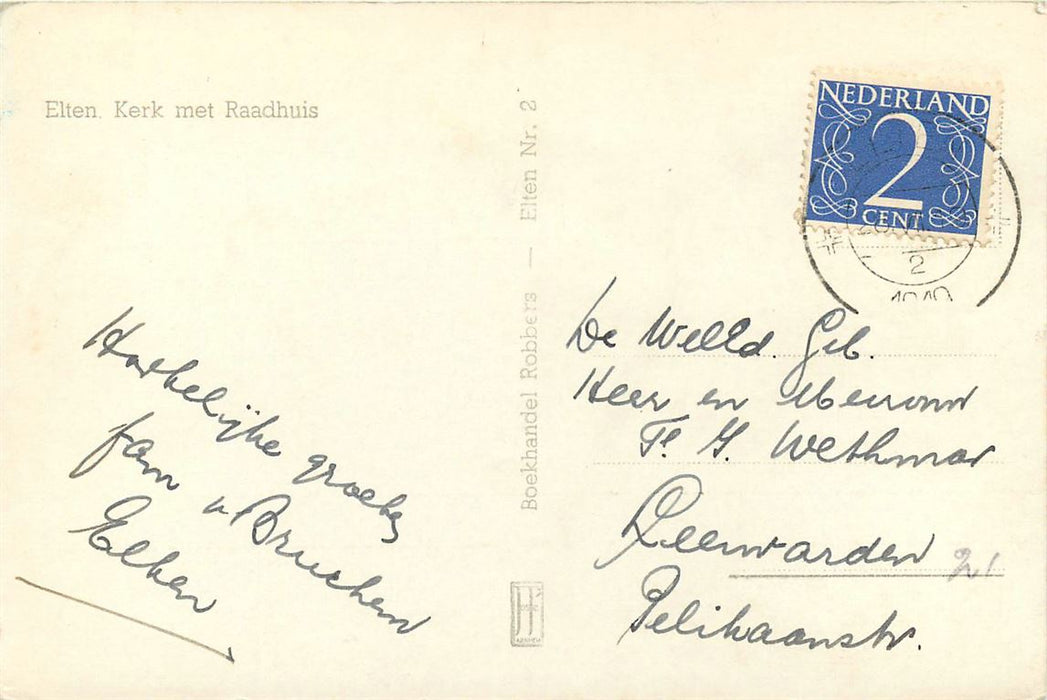 Elten. Kerk met Raadhuis
Boekhandel Robbers — Elten Nr. 2
NEDERLAND
2
CENT
Hartelijke groeten
fam v Bruchem
Elten
De Welld. Geb.
Heer en Mevrouw
Wethmar
Leeuwarden
21
Pelikaanstr.